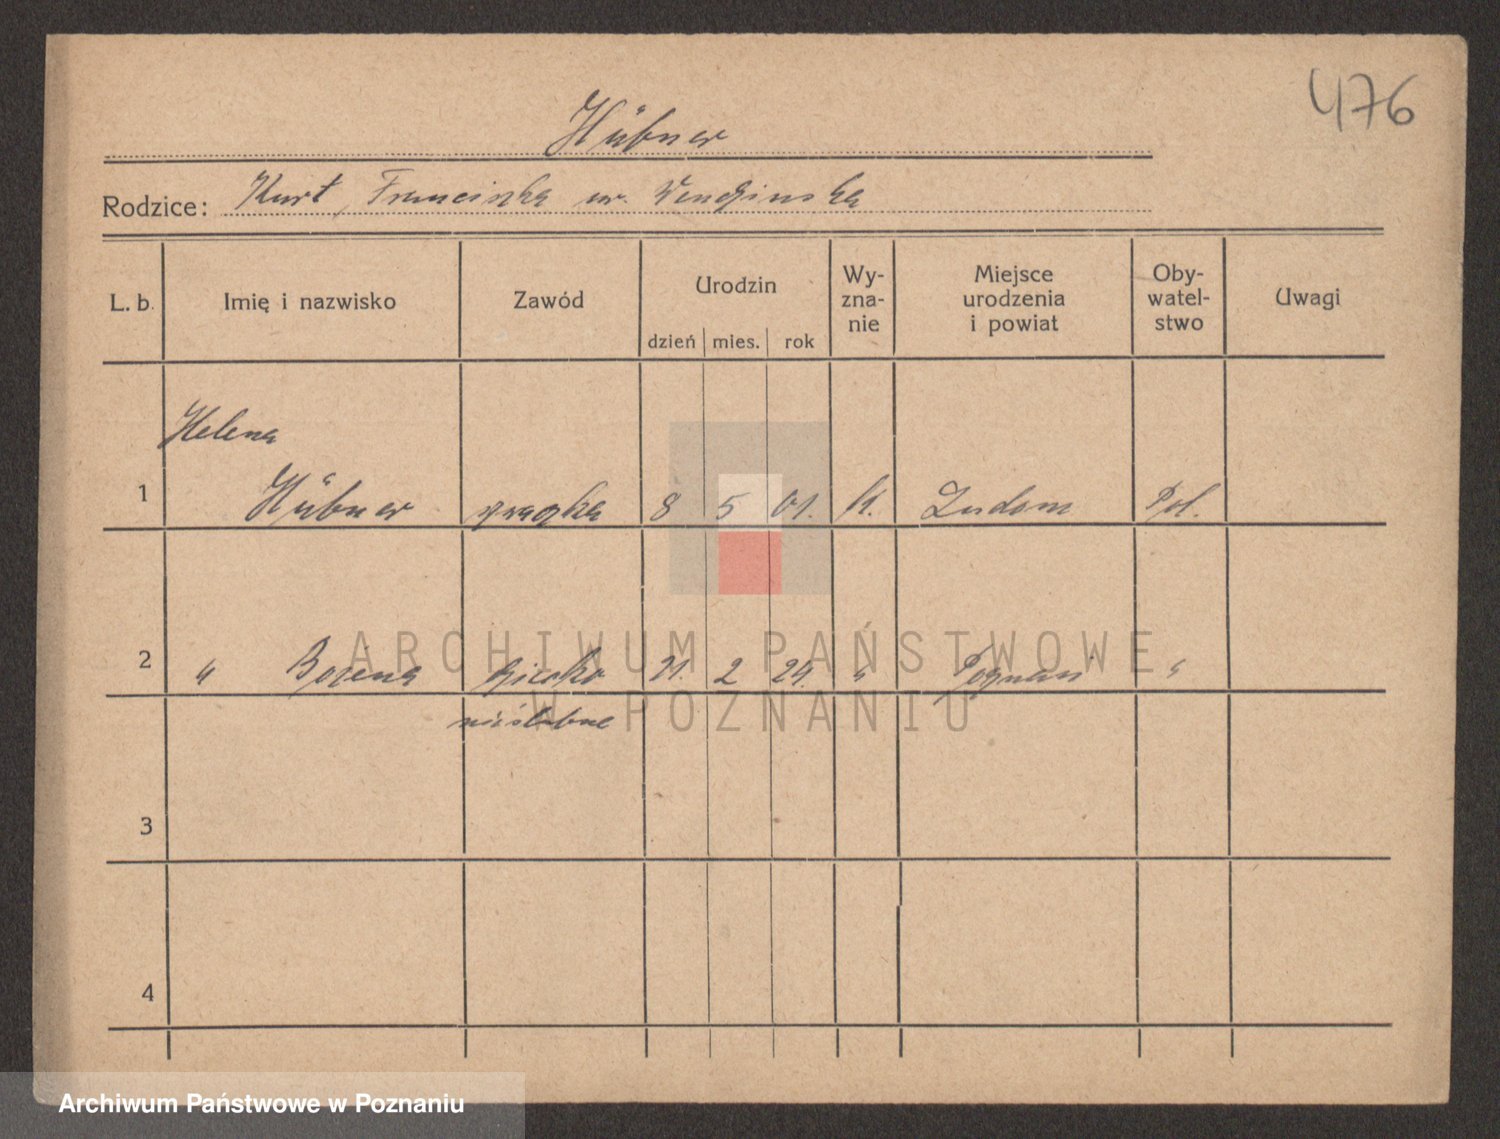 476
Hübner
Rodzice: Kurt, Franciszka ur. Wendzinska
L. b. Imię i nazwisko Zawód Urodzin dzień mies. rok Wy-zna-nie Miejsce urodzenia i powiat Oby-watel-stwo Uwagi
Helena
1 Hübner praczka 8 5 01. k. Ludom Pol.
2 " Bożena dziecko 21. 2 24. " Poznań "
nieślubne
3
4
ARCHIWUM PAŃSTWOWE
W POZNANIU
Archiwum Państwowe w Poznaniu